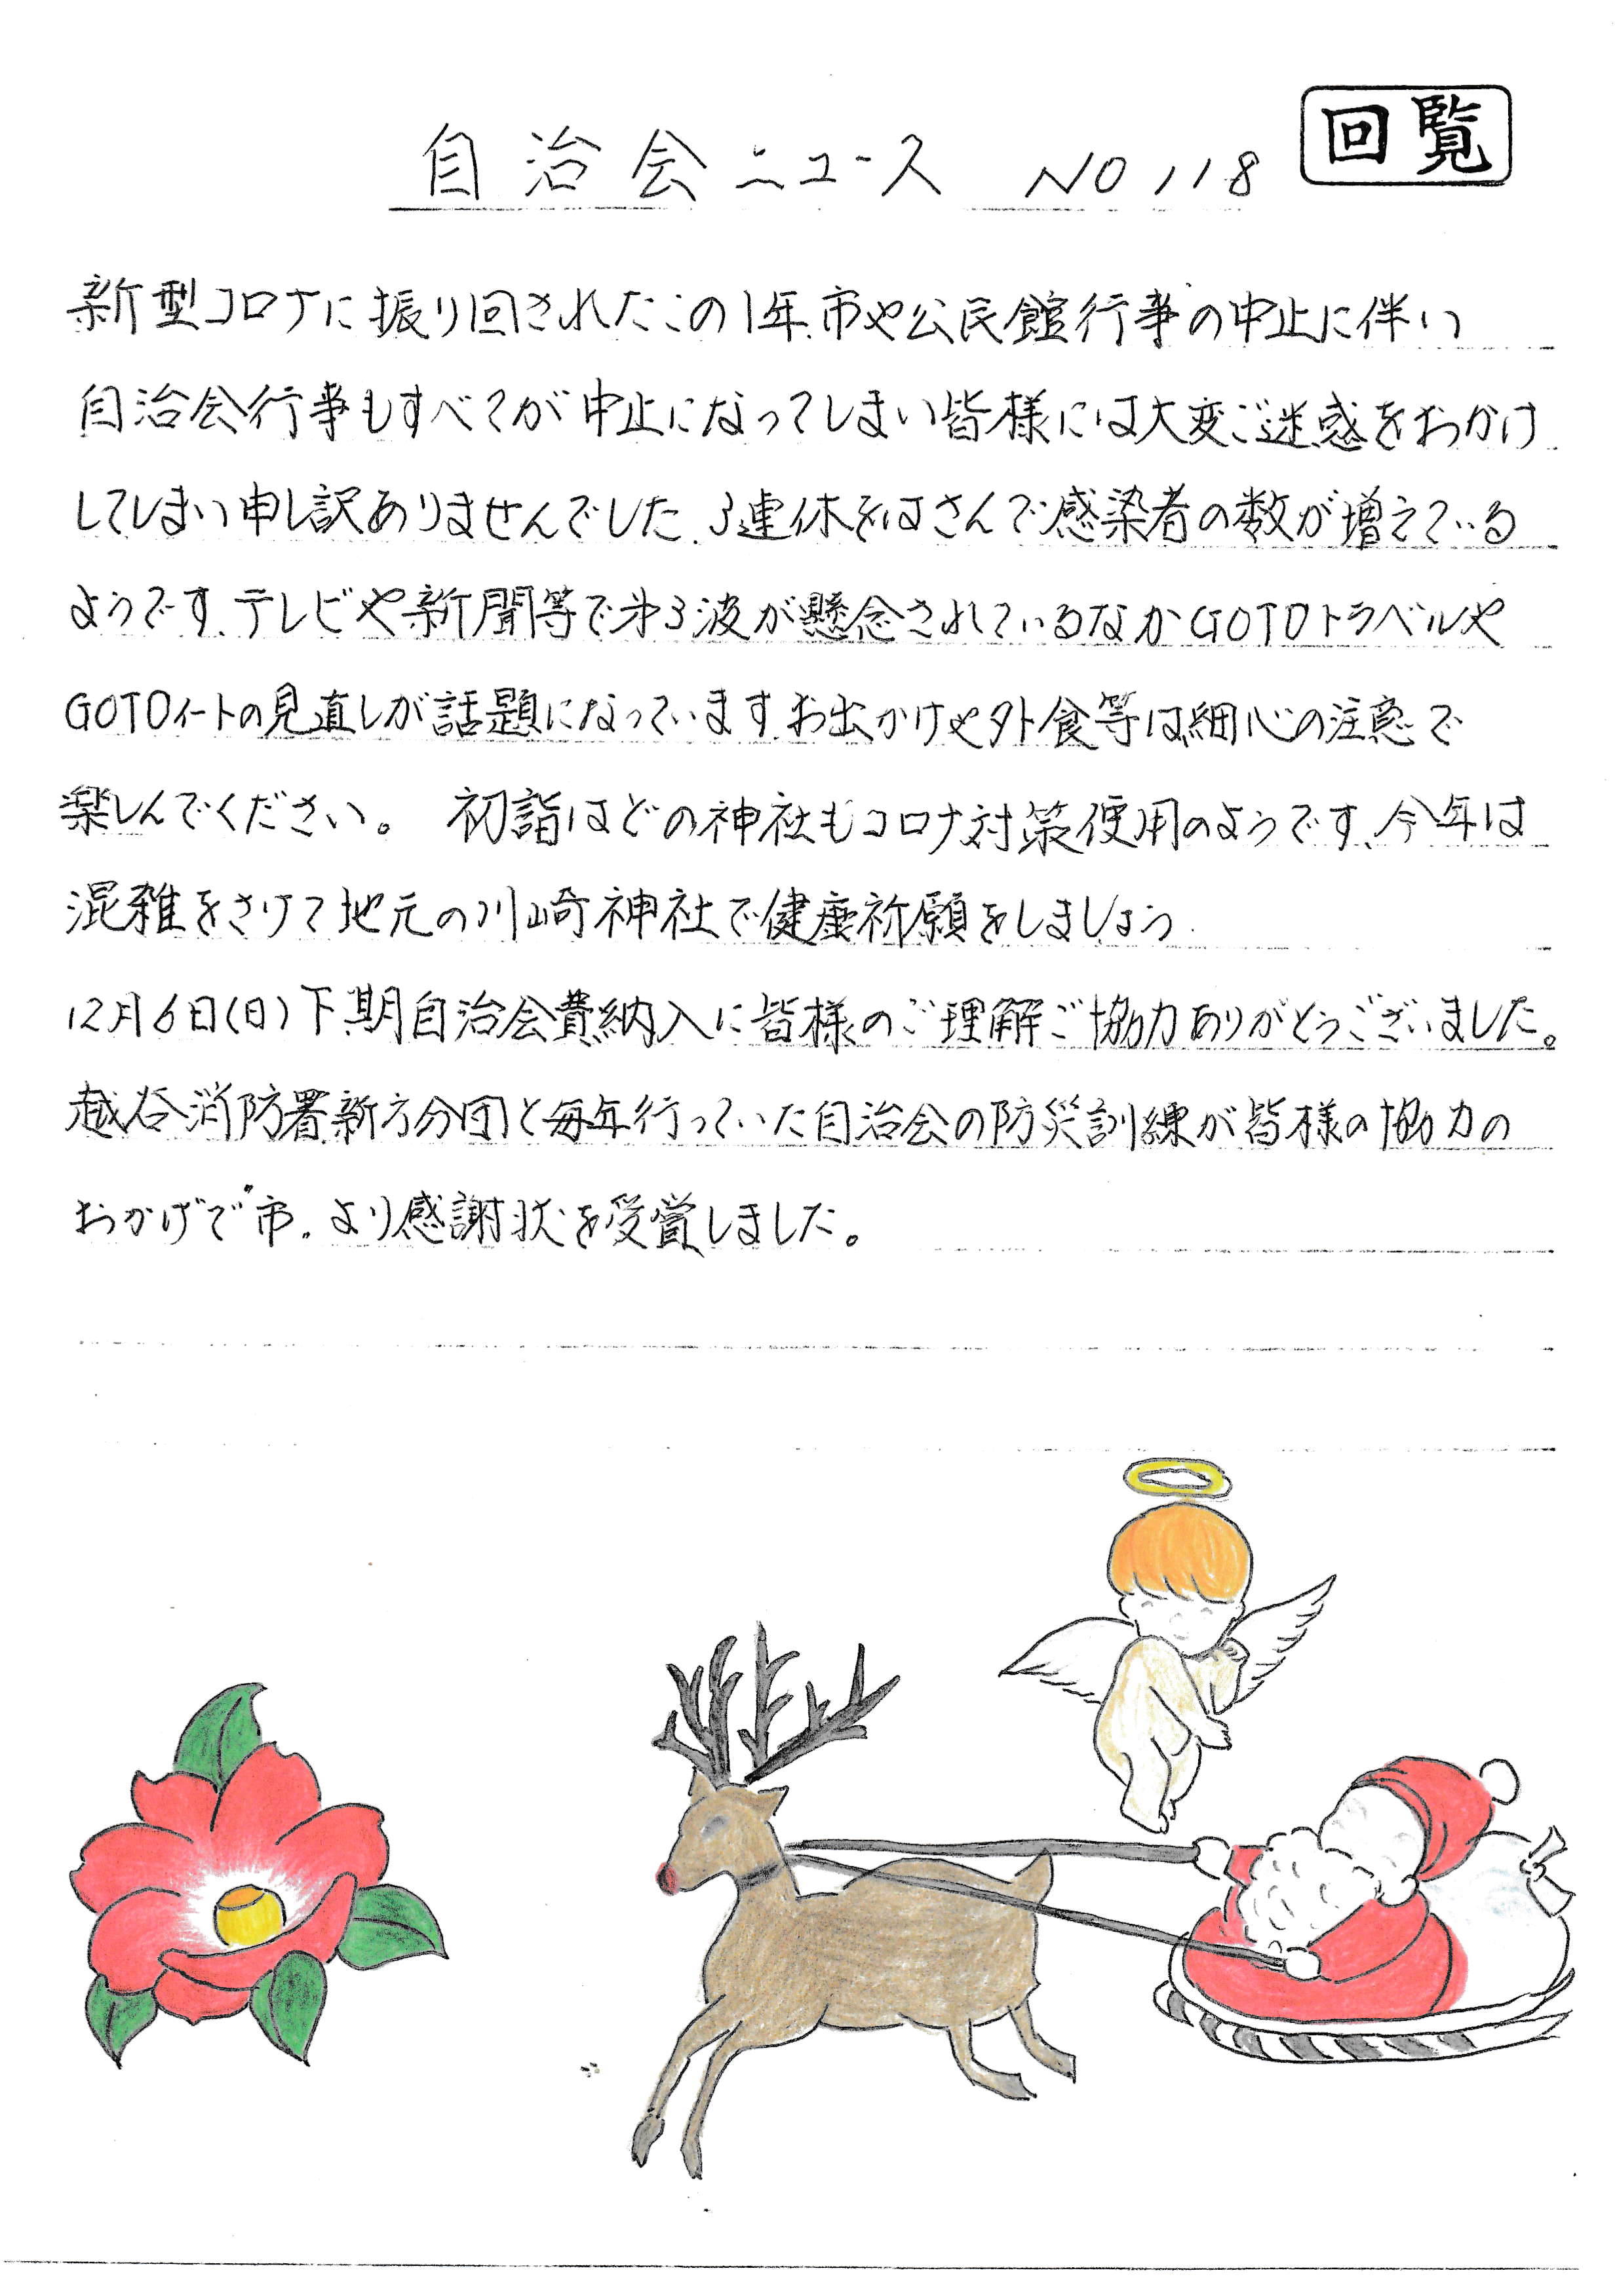 回覧
自治会ニュース NO 118
新型コロナに振り回されたこの1年、市や公民館行事の中止に伴い
自治会行事もすべてが中止になってしまい皆様には大変ご迷惑をおかけ
してしまい申し訳ありませんでした、3連休をはさんで感染者の数が増えている
ようです、テレビや新聞等で第3波が懸念されているなかGOTOトラベルや
GOTOイートの見直しが話題になっています、お出かけや外食等は細心の注意で
楽しんでください。 初詣はどの神社もコロナ対策使用のようです、今年は
混雑をさけて地元の川崎神社で健康祈願をしましょう
12月6日(日)下期自治会費納入に皆様のご理解ご協力ありがとうございました。
越谷消防署新方分団と毎年行っていた自治会の防災訓練が皆様の協力の
おかげで市、より感謝状を受賞しました。